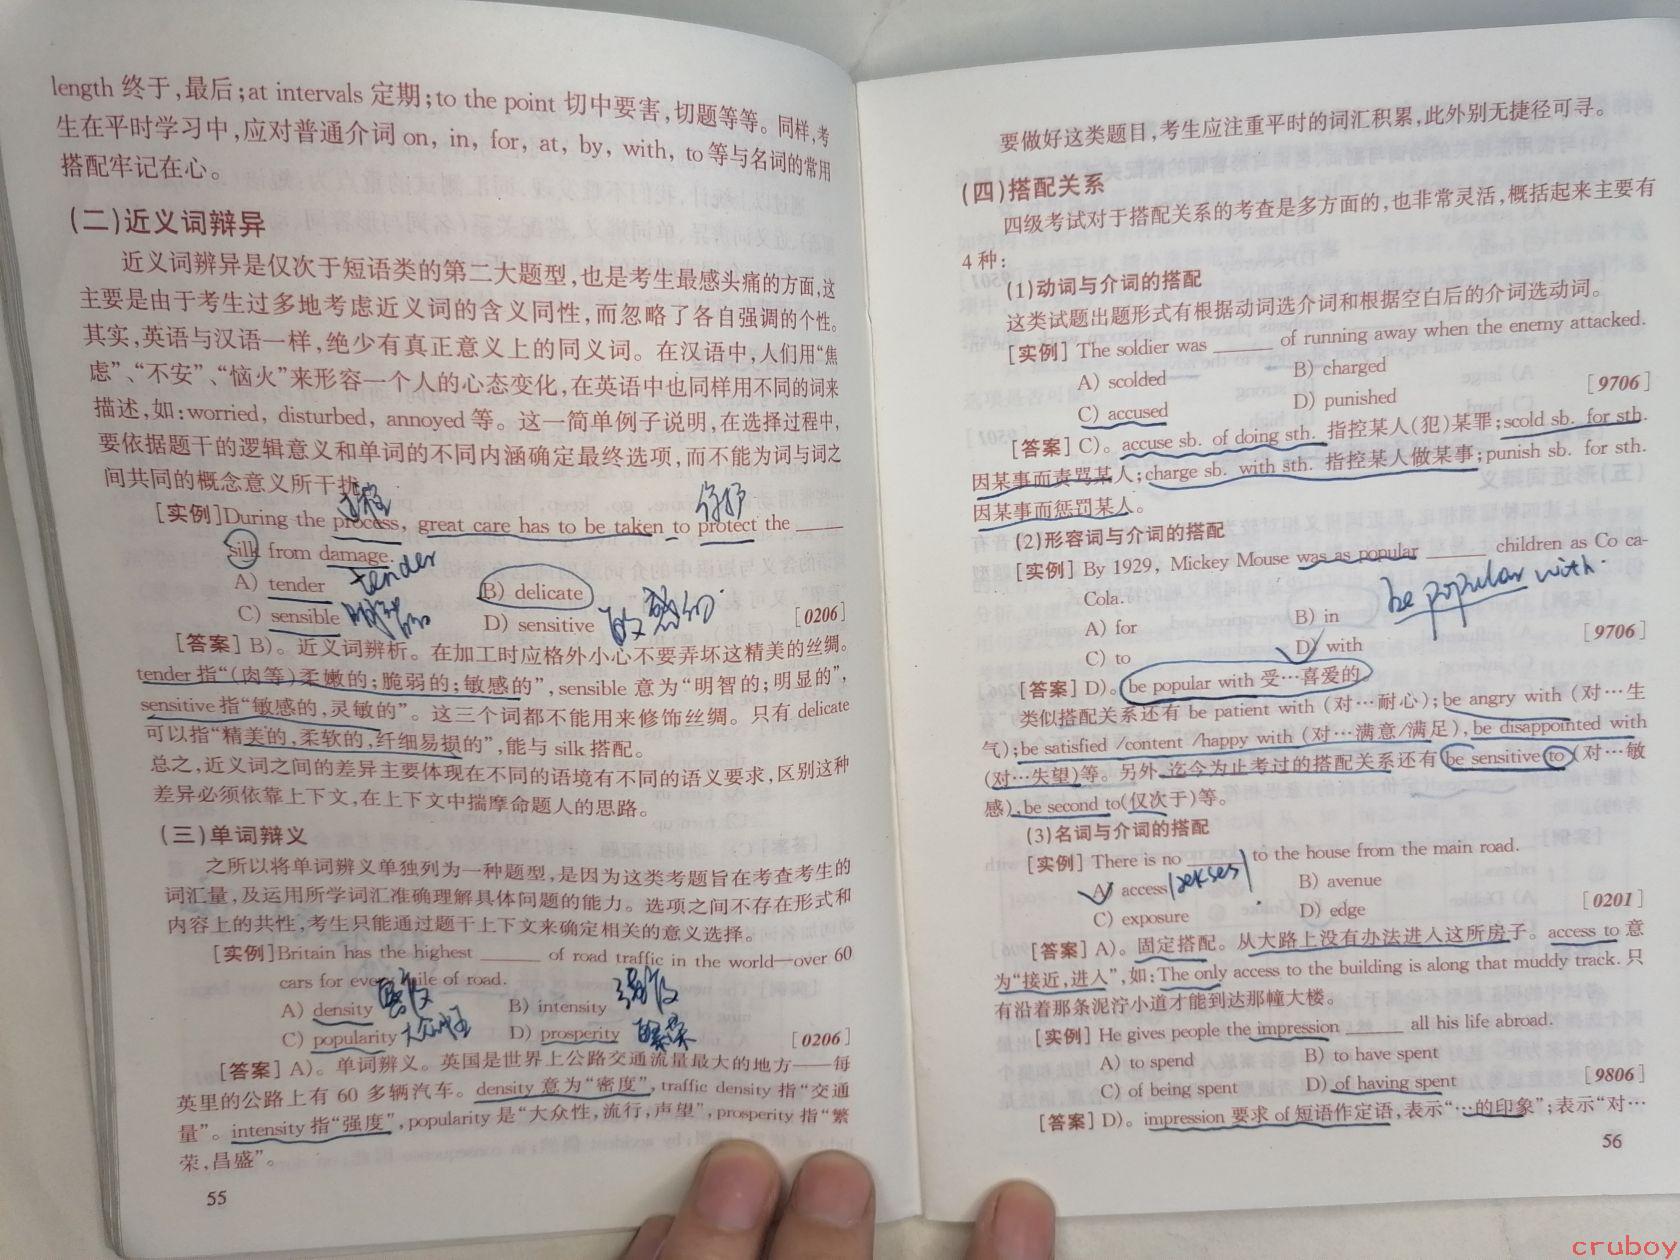 length 终于,最后;at intervals 定期;to the point 切中要害,切题等等。同样,考
生在平时学习中,应对普通介词 on, in, for, at, by, with, to 等与名词的常用
搭配牢记在心。
(二)近义词辩异
近义词辨异是仅次于短语类的第二大题型,也是考生最感头痛的方面,这
主要是由于考生过多地考虑近义词的含义同性,而忽略了各自强调的个性。
其实,英语与汉语一样,绝少有真正意义上的同义词。在汉语中,人们用“焦
虑”、“不安”、“恼火”来形容一个人的心态变化,在英语中也同样用不同的词来
描述,如:worried, disturbed, annoyed 等。这一简单例子说明,在选择过程中,
要依据题干的逻辑意义和单词的不同内涵确定最终选项,而不能为词与词之
间共同的概念意义所干扰。
过程 保护
[实例]During the process, great care has to be taken to protect the ____
silk from damage.
A) tender tender B) delicate
C) sensible 明智的 D) sensitive 敏感的 [0206]
[答案] B)。近义词辨析。在加工时应格外小心不要弄坏这精美的丝绸。
tender 指“(肉等)柔嫩的;脆弱的;敏感的”, sensible 意为“明智的;明显的”,
sensitive 指“敏感的,灵敏的”。这三个词都不能用来修饰丝绸。只有 delicate
可以指“精美的,柔软的,纤细易损的”,能与 silk 搭配。
总之,近义词之间的差异主要体现在不同的语境有不同的语义要求,区别这种
差异必须依靠上下文,在上下文中揣摩命题人的思路。
(三)单词辩义
之所以将单词辨义单独列为一种题型,是因为这类考题旨在考查考生的
词汇量,及运用所学词汇准确理解具体问题的能力。选项之间不存在形式和
内容上的共性,考生只能通过题干上下文来确定相关的意义选择。
[实例]Britain has the highest ____ of road traffic in the world—over 60
cars for every mile of road.
A) density 密度 B) intensity 强度
C) popularity 大众性 D) prosperity 繁荣 [0206]
[答案] A)。单词辨义。英国是世界上公路交通流量最大的地方——每
英里的公路上有 60 多辆汽车。density 意为“密度”, traffic density 指“交通
量”。intensity 指“强度”, popularity 是“大众性,流行,声望”, prosperity 指“繁
荣,昌盛”。
55
要做好这类题目,考生应注重平时的词汇积累,此外别无捷径可寻。
(四)搭配关系
四级考试对于搭配关系的考查是多方面的,也非常灵活,概括起来主要有
4 种:
(1)动词与介词的搭配
这类试题出题形式有根据动词选介词和根据空白后的介词选动词。
[实例] The soldier was ____ of running away when the enemy attacked.
A) scolded B) charged
C) accused D) punished [9706]
[答案] C)。accuse sb. of doing sth. 指控某人(犯)某罪;scold sb. for sth.
因某事而责骂某人;charge sb. with sth. 指控某人做某事;punish sb. for sth.
因某事而惩罚某人。
(2)形容词与介词的搭配
[实例] By 1929, Mickey Mouse was as popular ____ children as Co ca-
Cola. be popular with.
A) for B) in
C) to D) with [9706]
[答案] D)。be popular with 受…喜爱的。
类似搭配关系还有 be patient with (对…耐心);be angry with (对…生
气);be satisfied /content /happy with (对…满意/满足), be disappointed with
(对…失望)等。另外,迄今为止考过的搭配关系还有 be sensitive to (对…敏
感),be second to(仅次于)等。
(3)名词与介词的搭配
[实例] There is no ____ to the house from the main road.
A) access B) avenue
C) exposure D) edge [0201]
[答案] A)。固定搭配。从大路上没有办法进入这所房子。access to 意
为“接近,进入”,如:The only access to the building is along that muddy track. 只
有沿着那条泥泞小道才能到达那幢大楼。
[实例] He gives people the impression ____ all his life abroad.
A) to spend B) to have spent
C) of being spent D) of having spent [9806]
[答案] D)。impression 要求 of 短语作定语,表示“…的印象”;表示“对…
56
cruboy